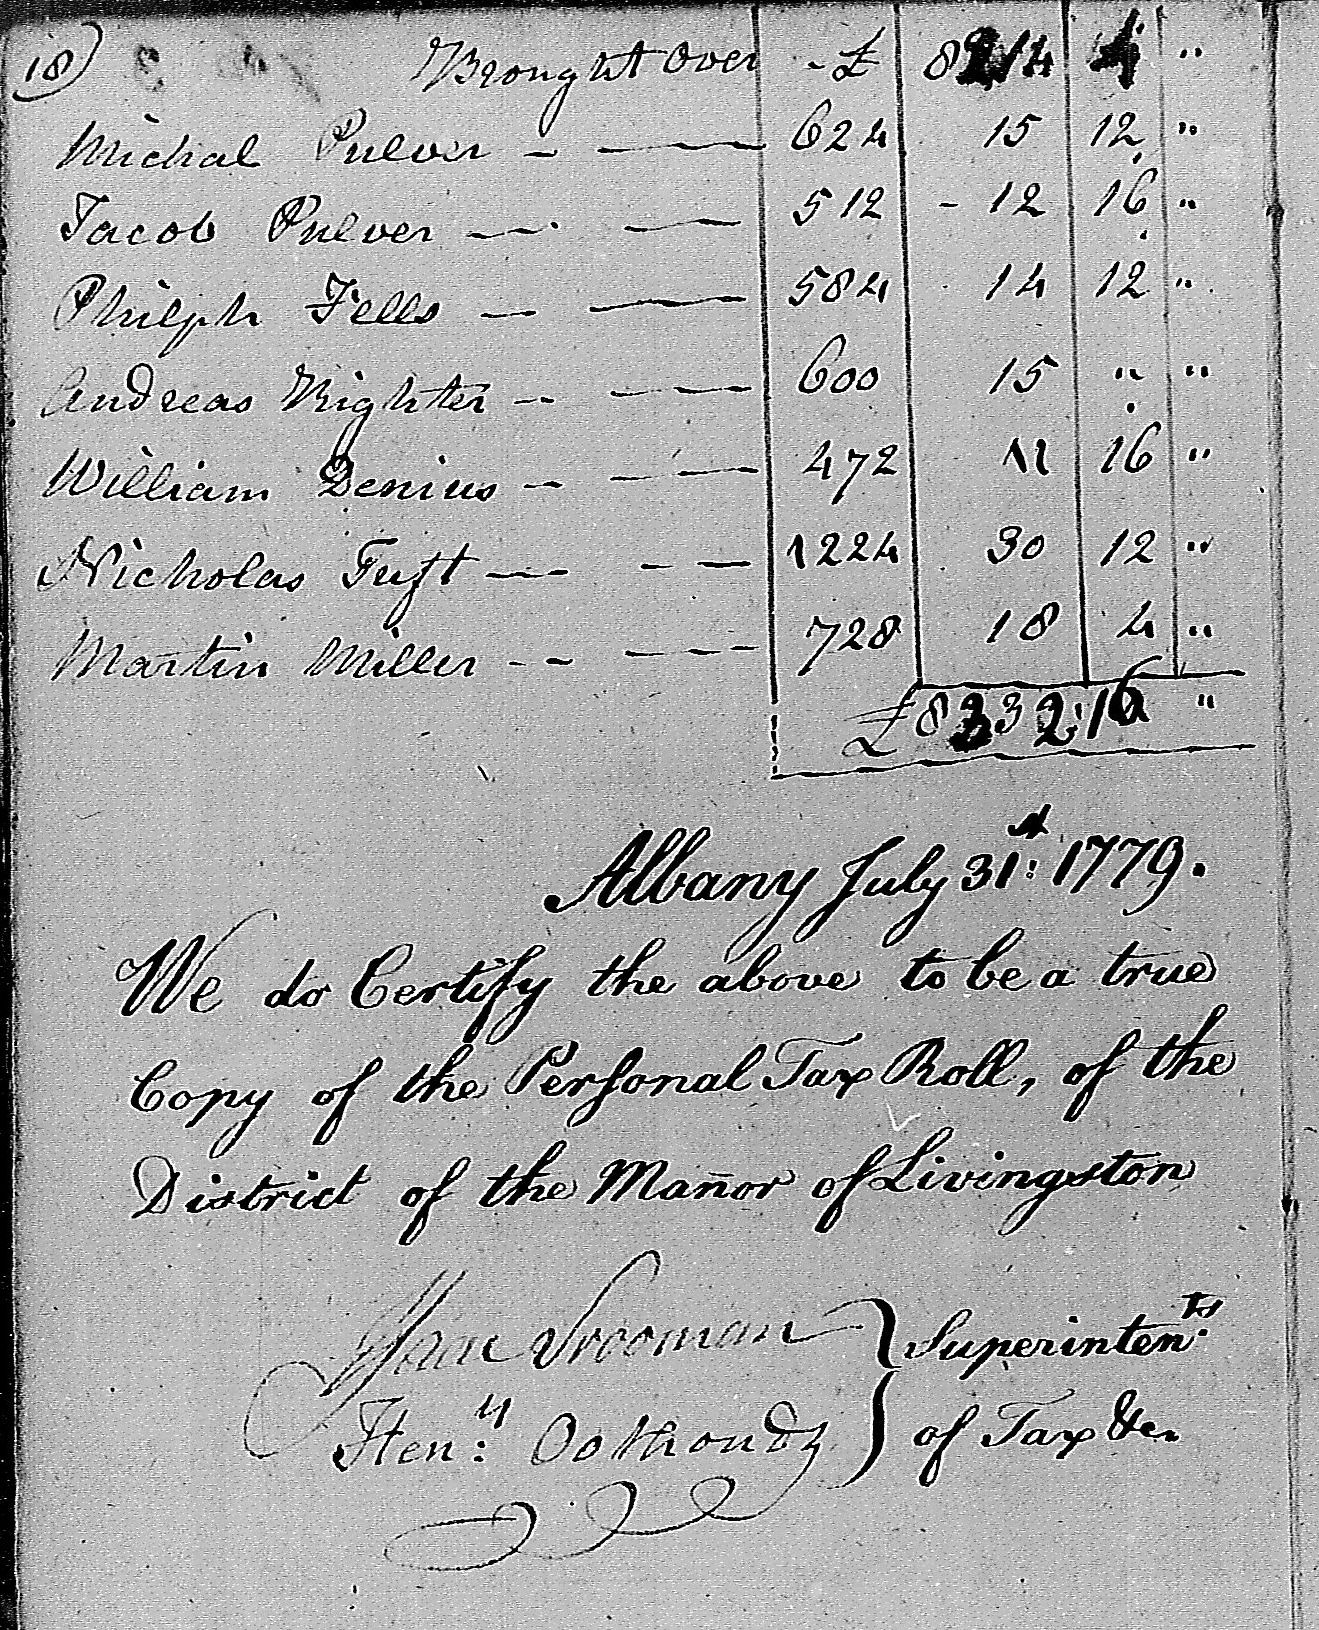 18)
Brought Over - £ 8214 4 "
Michal Pulver - — 624 15 12 "
Jacob Pulver — - — 512 - 12 16 "
Philiph Fells — — 584 14 12 "
Andreas Righter - - — 600 15 " "
William Denius - - — 472 11 16 "
Nicholas Fust — - - — 1224 30 12 "
Martin Miller - - — - - 728 18 4 "
£ 8332:16 "
Albany July 31st: 1779.
We do Certify the above to be a true
Copy of the Personal Tax Roll, of the
District of the Mañor of Livingston
Isaac Vrooman } Superintents:
Heny: Oothoudt } of Tax &c.